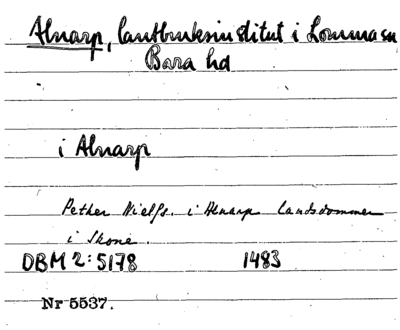 Alnarp, lantbruksinstitut i Lomma sn
Bara hd
i Alnarp
Pether Nielss. i Alnarp landsdommer
i Skone.
DBM 2:5178 1483
Nr 5537.